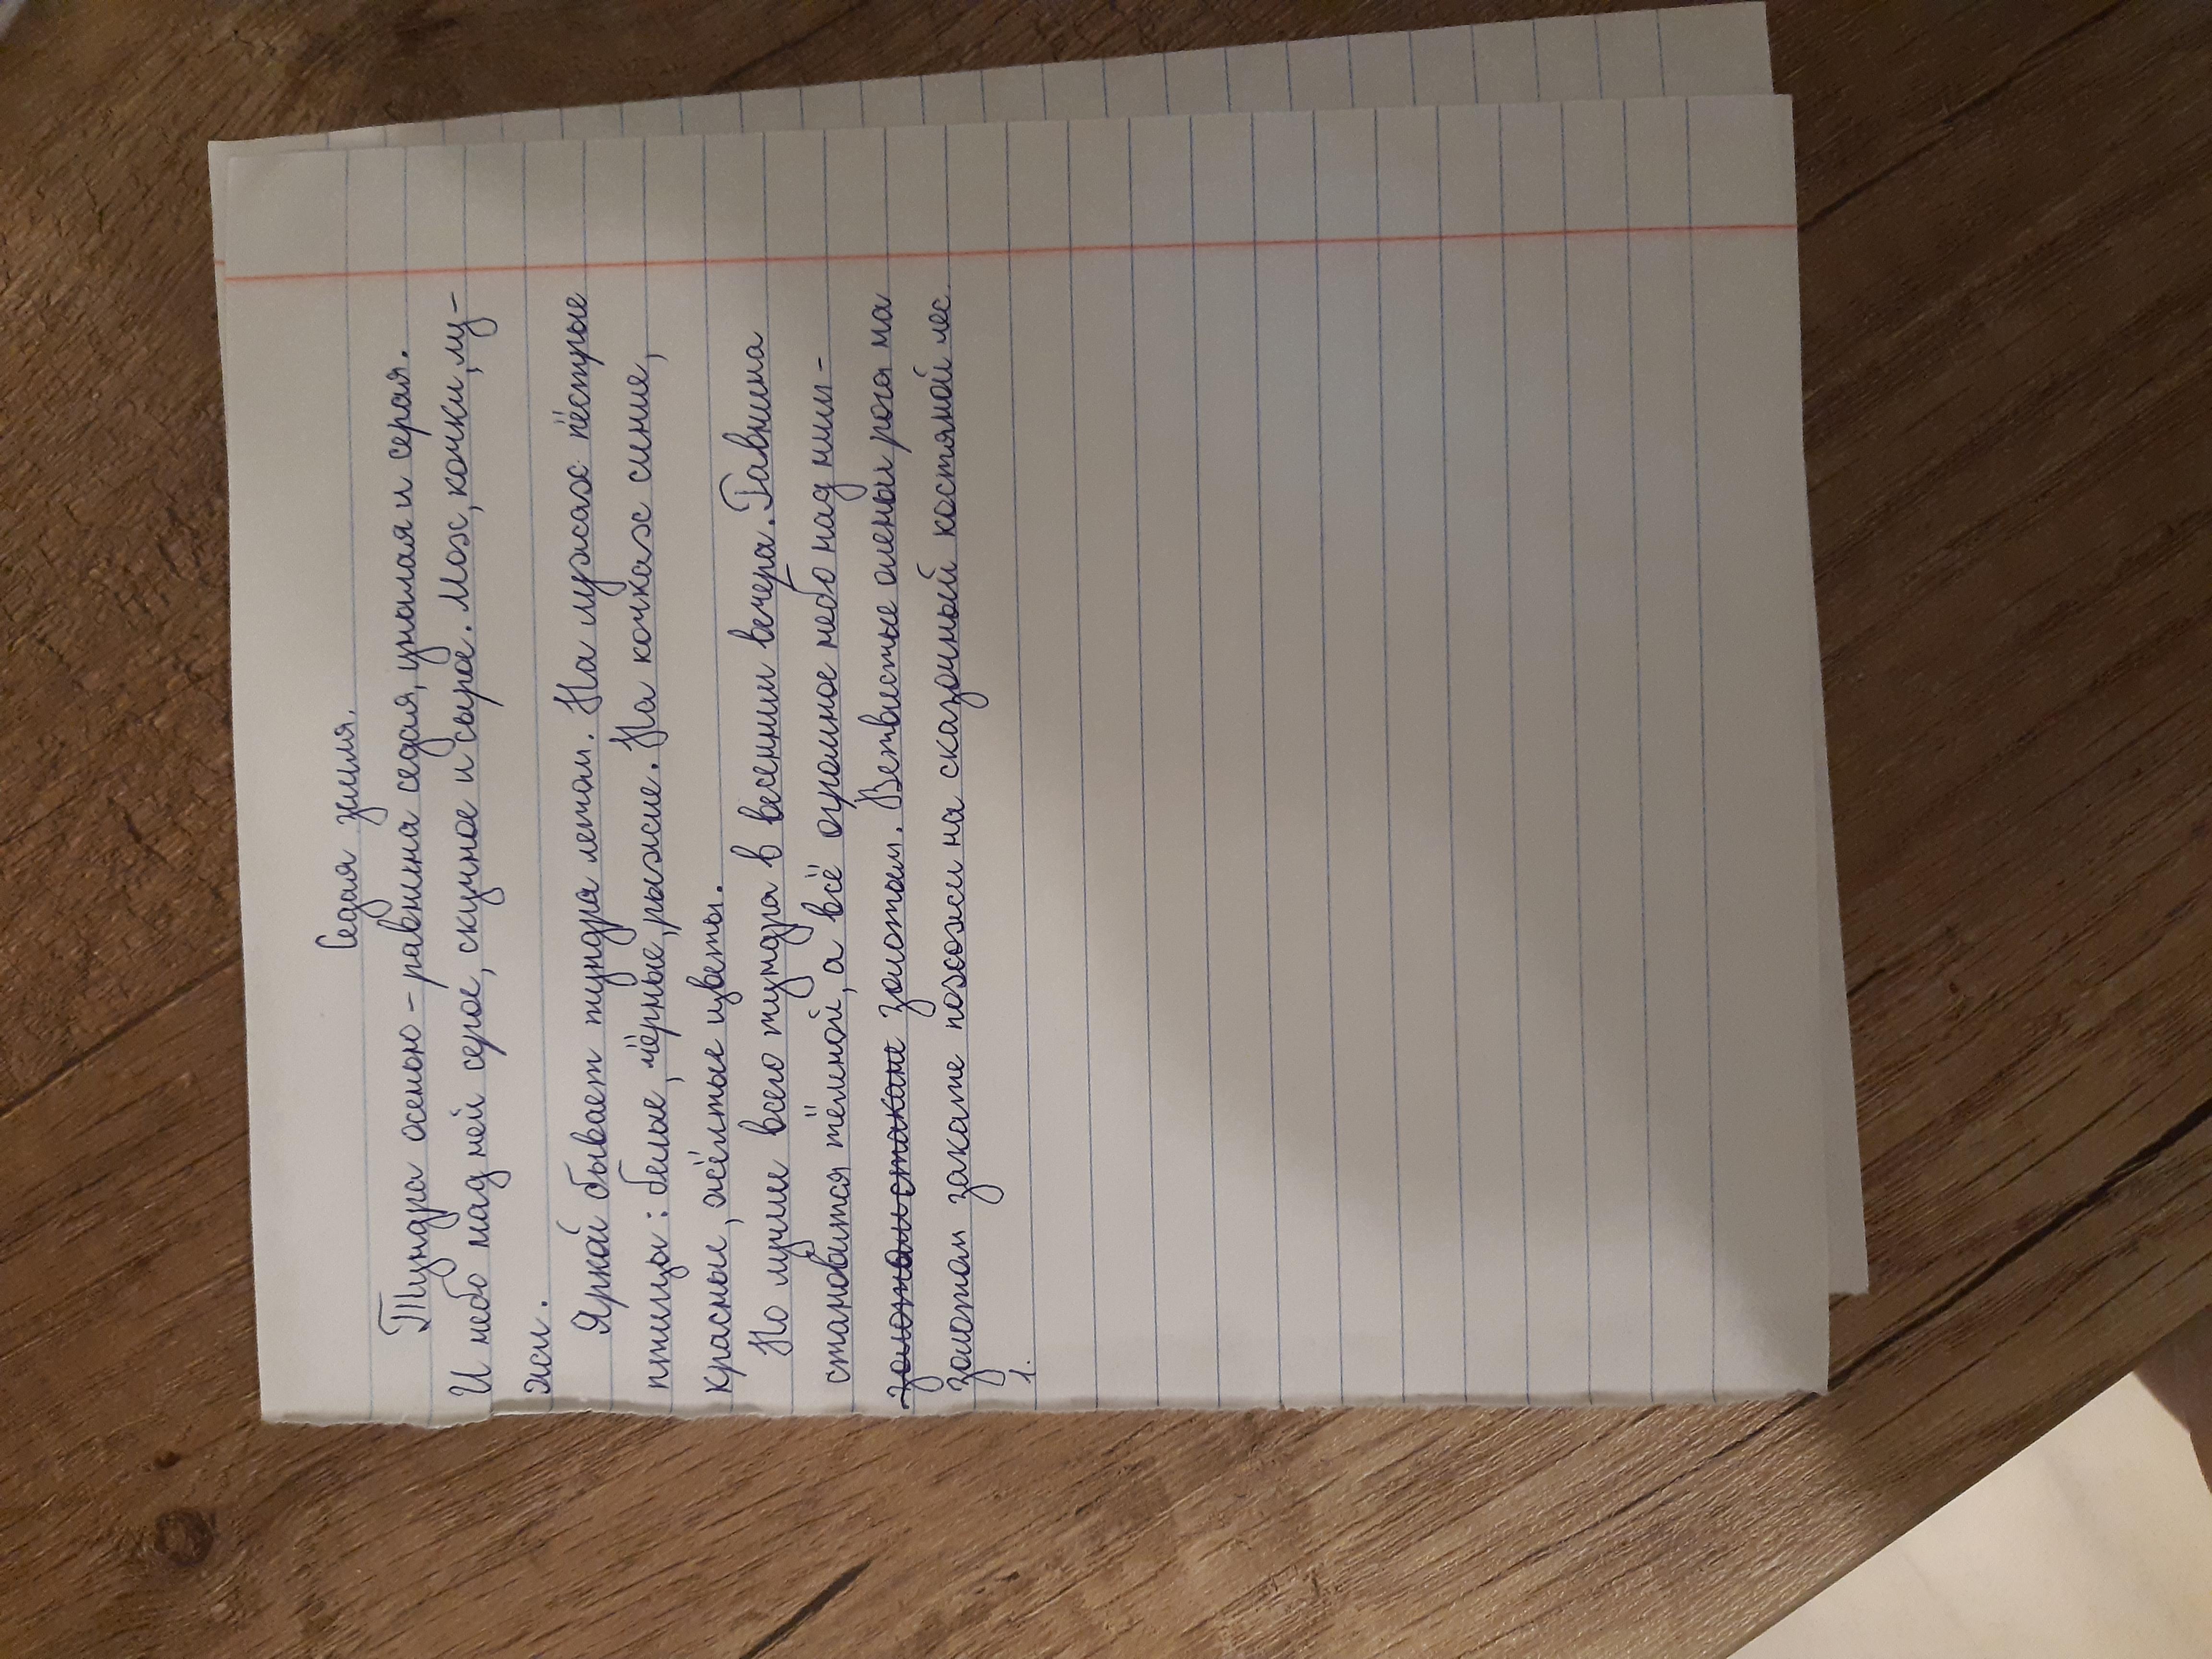 Седая земля.
Тундра осенью - равнина седая, унылая и серая.
И небо над ней серое, скучное и сырое. Мох, кочки, лу-
жи.
Яркой бывает тундра летом. На лужах пёстрые
птицы: белые, чёрные, рыжие. На кочках синие,
красные, жёлтые цветы.
Но лучше всего тундра в весенние вечера. Равнина
становится тёмной, а всё огромное небо над ним -
золотым. Ветвистые оленьи рога на
золотом закате похожи на сказочный костяной лес.
1.